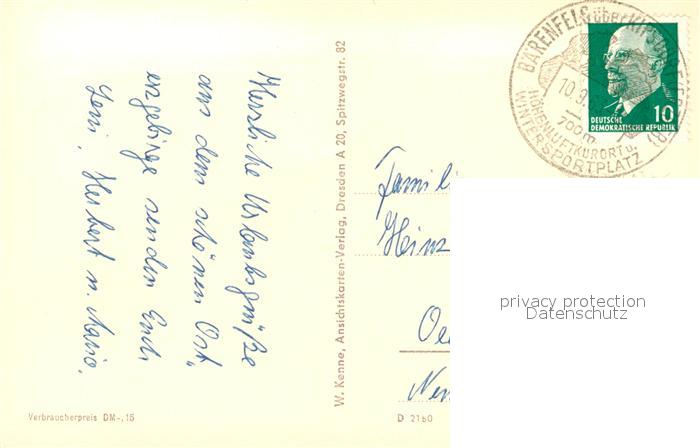 Herzliche Urlaubsgrüße
aus dem schönen Ost-
erzgebirge senden Euch
Leni, Herbert u. Mario.
Verbraucherpreis DM-,15
W. Kenne, Ansichtskarten-Verlag, Dresden A 20, Spitzwegstr. 82
D 2160
BÄRENFELS über KIPSDORF
10.9.
700m
HÖHENLUFTKURORT u.
WINTERSPORTPLATZ
10
DEUTSCHE
DEMOKRATISCHE REPUBLIK
Famili
Heinz
privacy protection
Datenschutz
Oe